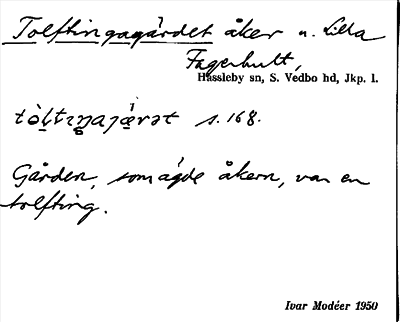 Tolftingagärdet åker u. Lilla
Fagerhult,
Hässleby sn, S. Vedbo hd, Jkp. l.
s. 168.
Gården, som ägde åkern, var en
tolfting.
Ivar Modéer 1950